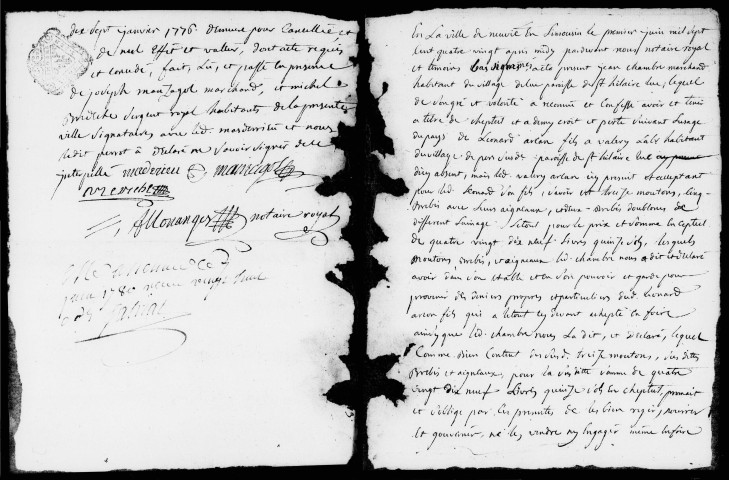 dix Sept janvier 1776. Demeure pour Cancellée et
de nul Effet et valleur, dont acte requis
et Concédé, fait, Lû, et passé En presence
de joseph marchand, et michel
Sergent royal habitants de la presente
ville signataires avec led. et nous
ledit perrot a Declaré ne Savoir Signer de ce
interpellé
notaire royal
juin 1780
En La ville de neuvic En Limousin le premier juin mil Sept
Cent quatre vingt apres midy pardevant nous notaire royal
et temoins bas nommés a été present jean chambre marchand
habitant du village de paroisse de St hilaire luc, lequel
de Son gré et volonté a reconnu et Confessé avoir et tenir
a titre de cheptel et a demy croit et perte Suivant l'usage
du pays de Léonard arlan fils a valery habitant
du village de paroisse de St hilaire luc
dicy absent, mais led. valery arlan icy present et acceptant
pour led. Léonard Son fils, Sçavoir est treize moutons, cinq
Brebis avec leurs aigneaux, et deux Brebis doublones de
different Suinage, Le tout pour le prix et Somme En Cheptel
de quatre vingt dix neuf Livres quinze Sols, Lesquels
moutons Brebis, et aigneaux led. chambre nous a dit et declaré
avoir dans Son Etable et en Son pouvoir et garde pour
provenir des deniers propres et particuliers dud. Léonard
arlan fils qui a le tout cy devant achepté En foire
ainsy que led. chambre nous La dit, et Declaré, lequel
Comme Bien Content desd. treize moutons, Susdittes
Brebis et aigneaux, pour la Susditte Somme de quatre
vingt dix neuf Livres quinze Sols En Cheptel, promait
et S'oblige par Ces presentes de les bien regir, nourrir
et gouverner, ne les vendre ny Engager même En foire